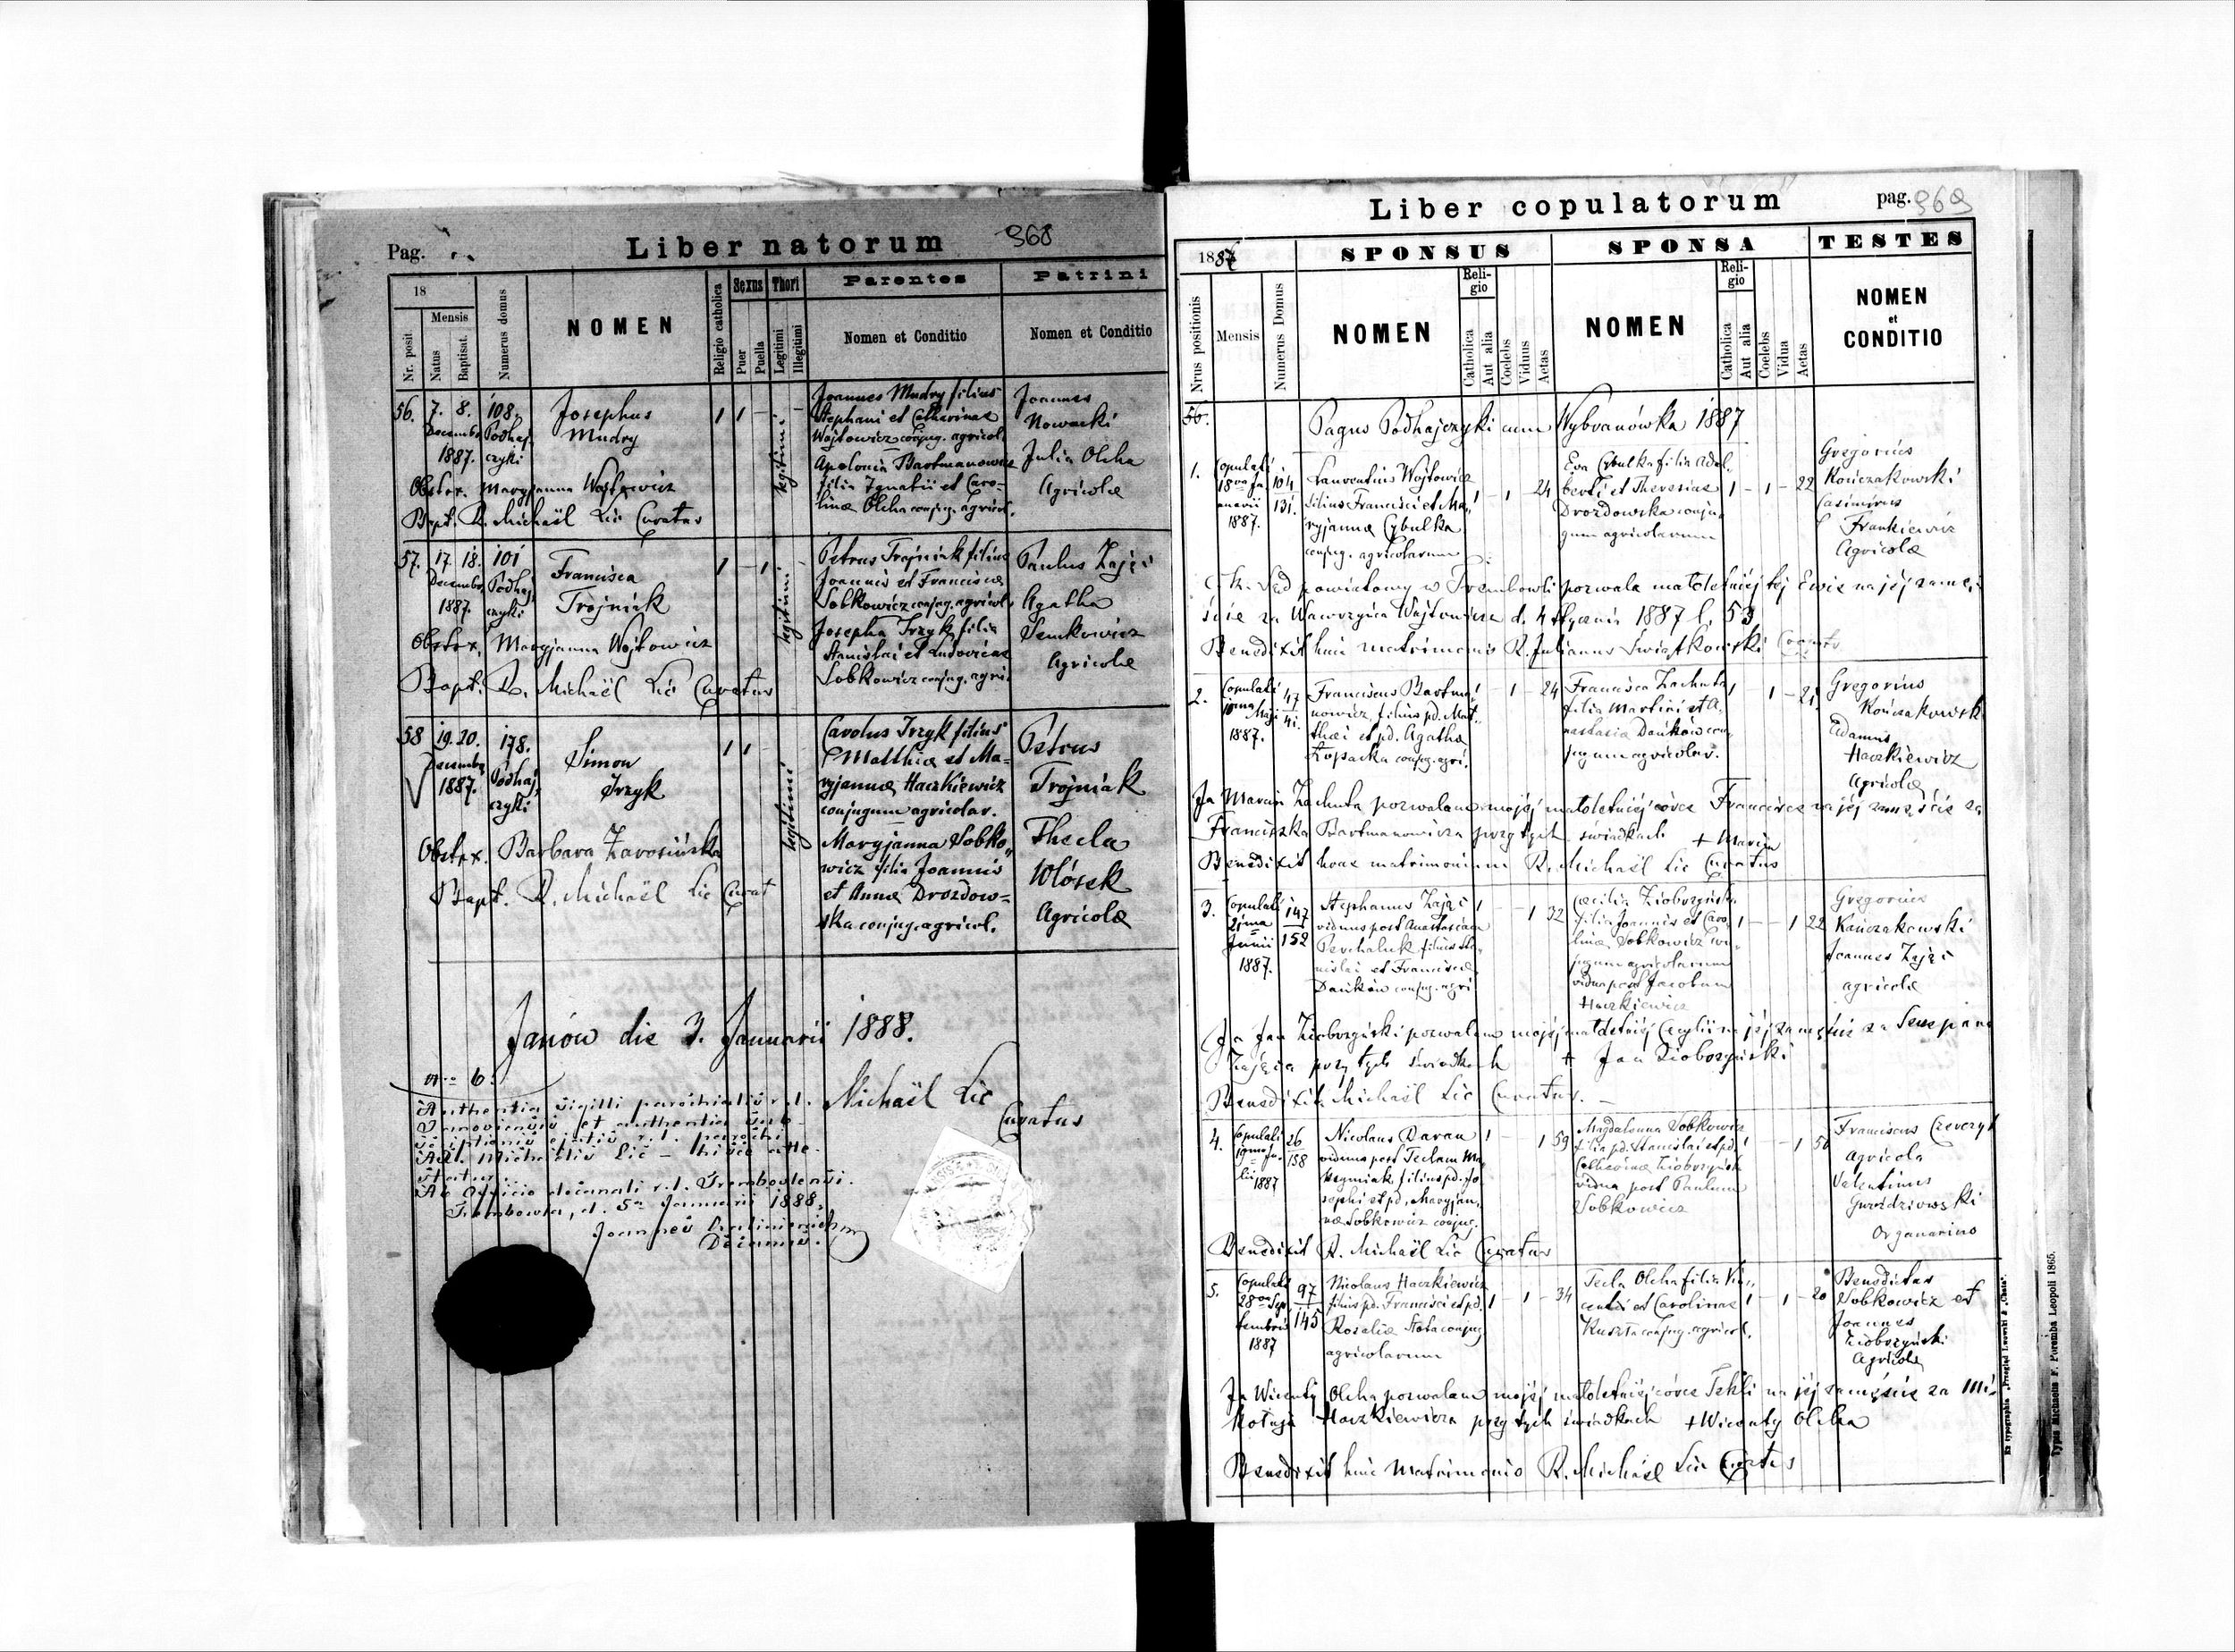 Pag.
Liber natorum
968
18
Nr. posit
Mensis
Natus
Baptisat.
Numerus domus
NOMEN
Religio catholica
Sexus
Puer
Puella
Thori
Legitimi
Illegitimi
Parentes
Nomen et Conditio
Patrini
Nomen et Conditio
56.
7. 8.
Decembr.
1887.
108.
Podhaj
czyki
Josephus
Mudry
1 1 -
legitimi
Joannes Mudry filius
Stephani et Catharinae
Wojtowicz conjug. agricol.
Apolonia Bartmanowicz
filia Ignatii et Caro-
linae Olcha conjug. agricol.
Joannes
Nowacki
Julia Olcha
Agricolae
Obstex. Maryjanna Wojtowicz
Bapt. R. Michaël Lic Curatus
57.
17. 18.
Decembr.
1887.
101
Podhaj
czyki
Francisca
Trojniak
1 - 1
legitimi
Petrus Trojniak filius
Joannis et Franciscae
Sobkowicz conjug. agricol.
Josepha Irzyk filia
Stanislai et Ludovicae
Sobkowicz conjug. agri.
Paulus Zając
Agatha
Senkowicz
Agricolae
Obstex. Maryjanna Wojtowicz
Bapt. R. Michaël Lic Curatus
58
19. 20.
Decembr.
1887.
178.
Podhaj
czyki
Simon
Irzyk
1 1
legitimi
Carolus Irzyk filius
Matthiae et Ma-
ryjannae Haczkiewicz
conjugum agricolar.
Maryjanna Sobko„
wicz filia Joannis
et Annae Drozdow=
ska conjug. agricol.
Petrus
Trojniak
Thecla
Włosek
Agricolae
Obstex. Barbara Zarosińska
Bapt. R. Michaël Lic Curat
Janów die 3. Januarii 1888.
Michaël Lic
Curatus
N= 6.
Authentia sigilli parochialis r. l.
Janoviensis et authentia sub-
scriptionis ejatis r. l. parochi
Adl. Michaelis Lic - hisce atte-
statur.
Ab Officio decanali r. l. Trembovlensi.
Trembowla, d. 5a Januarii 1888.
Joannes
Decanus.
Liber copulatorum
pag. 969
1887
Nrus positionis
Mensis
Numerus Domus
SPONSUS
NOMEN
Reli-
gio
Catholica
Aut alia
Coelebs
Viduus
Aetas
SPONSA
NOMEN
Reli-
gio
Catholica
Aut alia
Coelebs
Vidua
Aetas
TESTES
NOMEN
et
CONDITIO
56.
Pagus Podhajczyki cum Wybranówka 1887
1.
Copulati
18va Ja-
nuarii
1887.
104
131.
Laurentius Wojtowicz
filius Francisci et Ma„
ryjannae Cybulka
conjug. agricolarum
1 - 1 - 24
Eva Cybulka filia Adal.
berti et Theresiae
Drozdowska conju„
gum agricolarum
1 - 1 - 22
Gregorius
Kończakowski
Casimirus
Frankiewicz
Agricolae
C. k. Sąd powiatowy w Trembowli pozwala małoletniej tej Ewie na jej zamęź-
ście za Wawrzyńca Wojtowicza d. 4 stycznia 1887 l. 53
Benedixit huic matrimonio R. Julianus Świątkowski
2.
Copulati
10ma Maji
1887.
47
41.
Franciscus Bartma„
nowicz, filius pd. Mat„
thaei et pd. Agathae
Kopacka conjug. agri.
1 - 1 - 24
Francisca Zachuta
filia Martini et A„
nastasia Dańków con„
jugum agricolar.
1 - 1 - 21
Gregorius
Kończakowski
Adamus
Haczkiewicz
Agricolae
Ja Marcin Zachuta pozwalam mojej małoletniej córce Francisce na jej zamęście za
Franciszka Bartmanowicza przy tych świadkach + Marcin
Benedixit hoac matrimonium R. Michaël Lic Curatus
3.
Copulati
21ma
Junii
1887.
147
152
Stephanus Zając
viduus post Anastasiam
Perchaluk filius Sta„
nislai et Franciscae
Dańków conjug. agri
1 - - 1 32
Caecilia Zioborzyńska
filia Joannis et Caro„
linae Sobkowicz con„
jugum agricolarum
vidua post Jacobum
Haczkiewicz
1 - - 1 22
Gregorius
Kończakowski
Joannes Zając
agricolae
Ja Jan Zioborzyński pozwalam mojej małoletniej Cecylii na jej zamęście za Szczepana
Zająca przy tych świadkach + Jan Zioborzyński
Benedixit Michaël Lic Curatus.
4.
Copulati
19na Ju„
lii
1887
26
158
Nicolaus Baran
viduus post Teclam Ma„
filius pd. Jo„
sephi et pd. Maryjan„
nae Sobkowicz conjug.
1 - - 1 59
Magdalenna Sobkowicz
filia pd. Stanislai et pd.
Catharinae Zioborzyńsk
vidua post Paulum
Sobkowicz
1 - - 1 50
Franciscus
Agricola
Valentinus
Gwoździowski
Organarius
Benedixit R. Michaël Lic Curatus
5.
Copulati
28va Sep
tembris
1887
97
145
Nicolaus Haczkiewicz
filius pd. Francisci et pd.
Rosaliae conjug
agricolarum
1 - 1 - 34
Tecla Olcha filia Vin„
centii et Carolinae
Kuszta conjug. agricol.
1 - 1 - 20
Benedictus
Sobkowicz et
Joannes
Zioborzyński
Agricolae
Ja Wicenty Olcha pozwalam mojej małoletniej córce Tekli na jej zamęście za Mi-
kołaja Haczkiewicza przy tych świadkach + Wicenty Olcha
Benedixit huic Matrimonio R. Michaël Lic Curatus
Ex typographia „Przegląd Lwowski & „Chata".
Typis Michaelis F. Poremba Leopoli 1865.